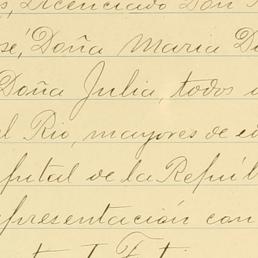 s, Licenciado Don
sé, Doña Maria D
Doña Julia, todos
l Rio, mayores de e
pital de la Repúl
epresentación con